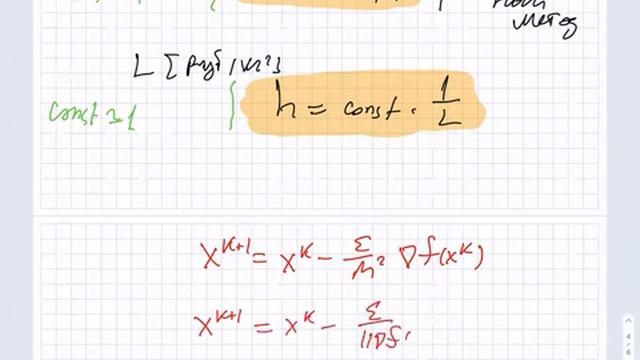 метод
L [руб/кг²]
const ≃ 1
h = const · 1/L
x^{k+1} = x^k − ε/M² ∇f(x^k)
x^{k+1} = x^k − ε/||∇f